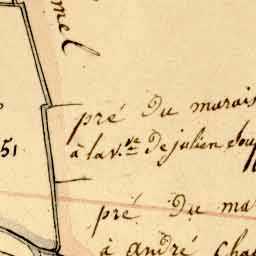 mel
51
pré Du marais
à la v.ve De julien
pré Du ma
à andré cha